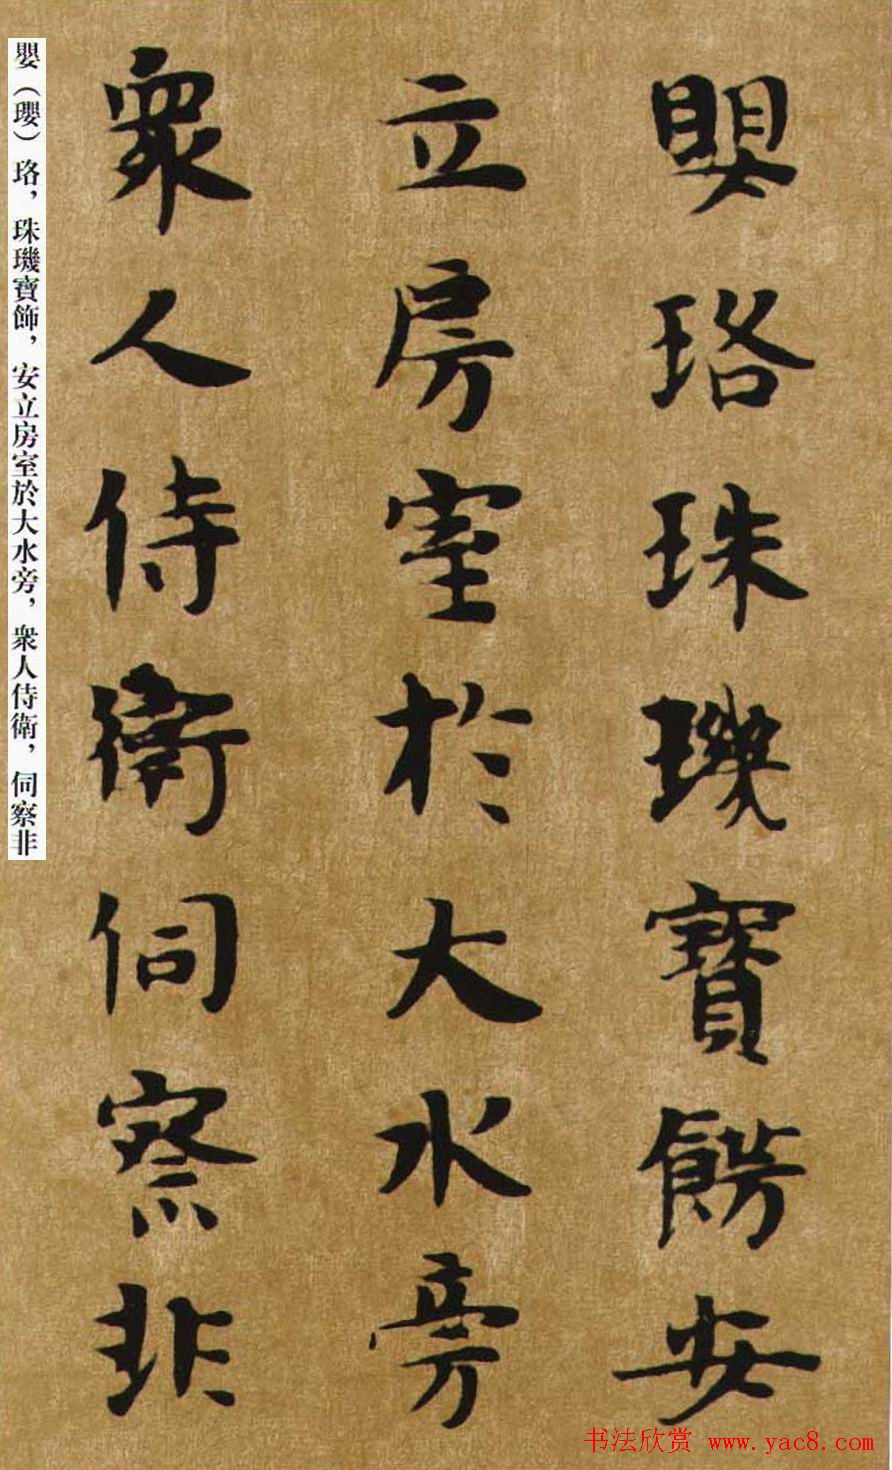 嬰珞珠璣寶飾安
立房室於大水旁
眾人侍衛伺察非
嬰（瓔）珞，珠璣寶飾，安立房室於大水旁，衆人侍衛，伺察非
书法欣赏 www.yac8.com